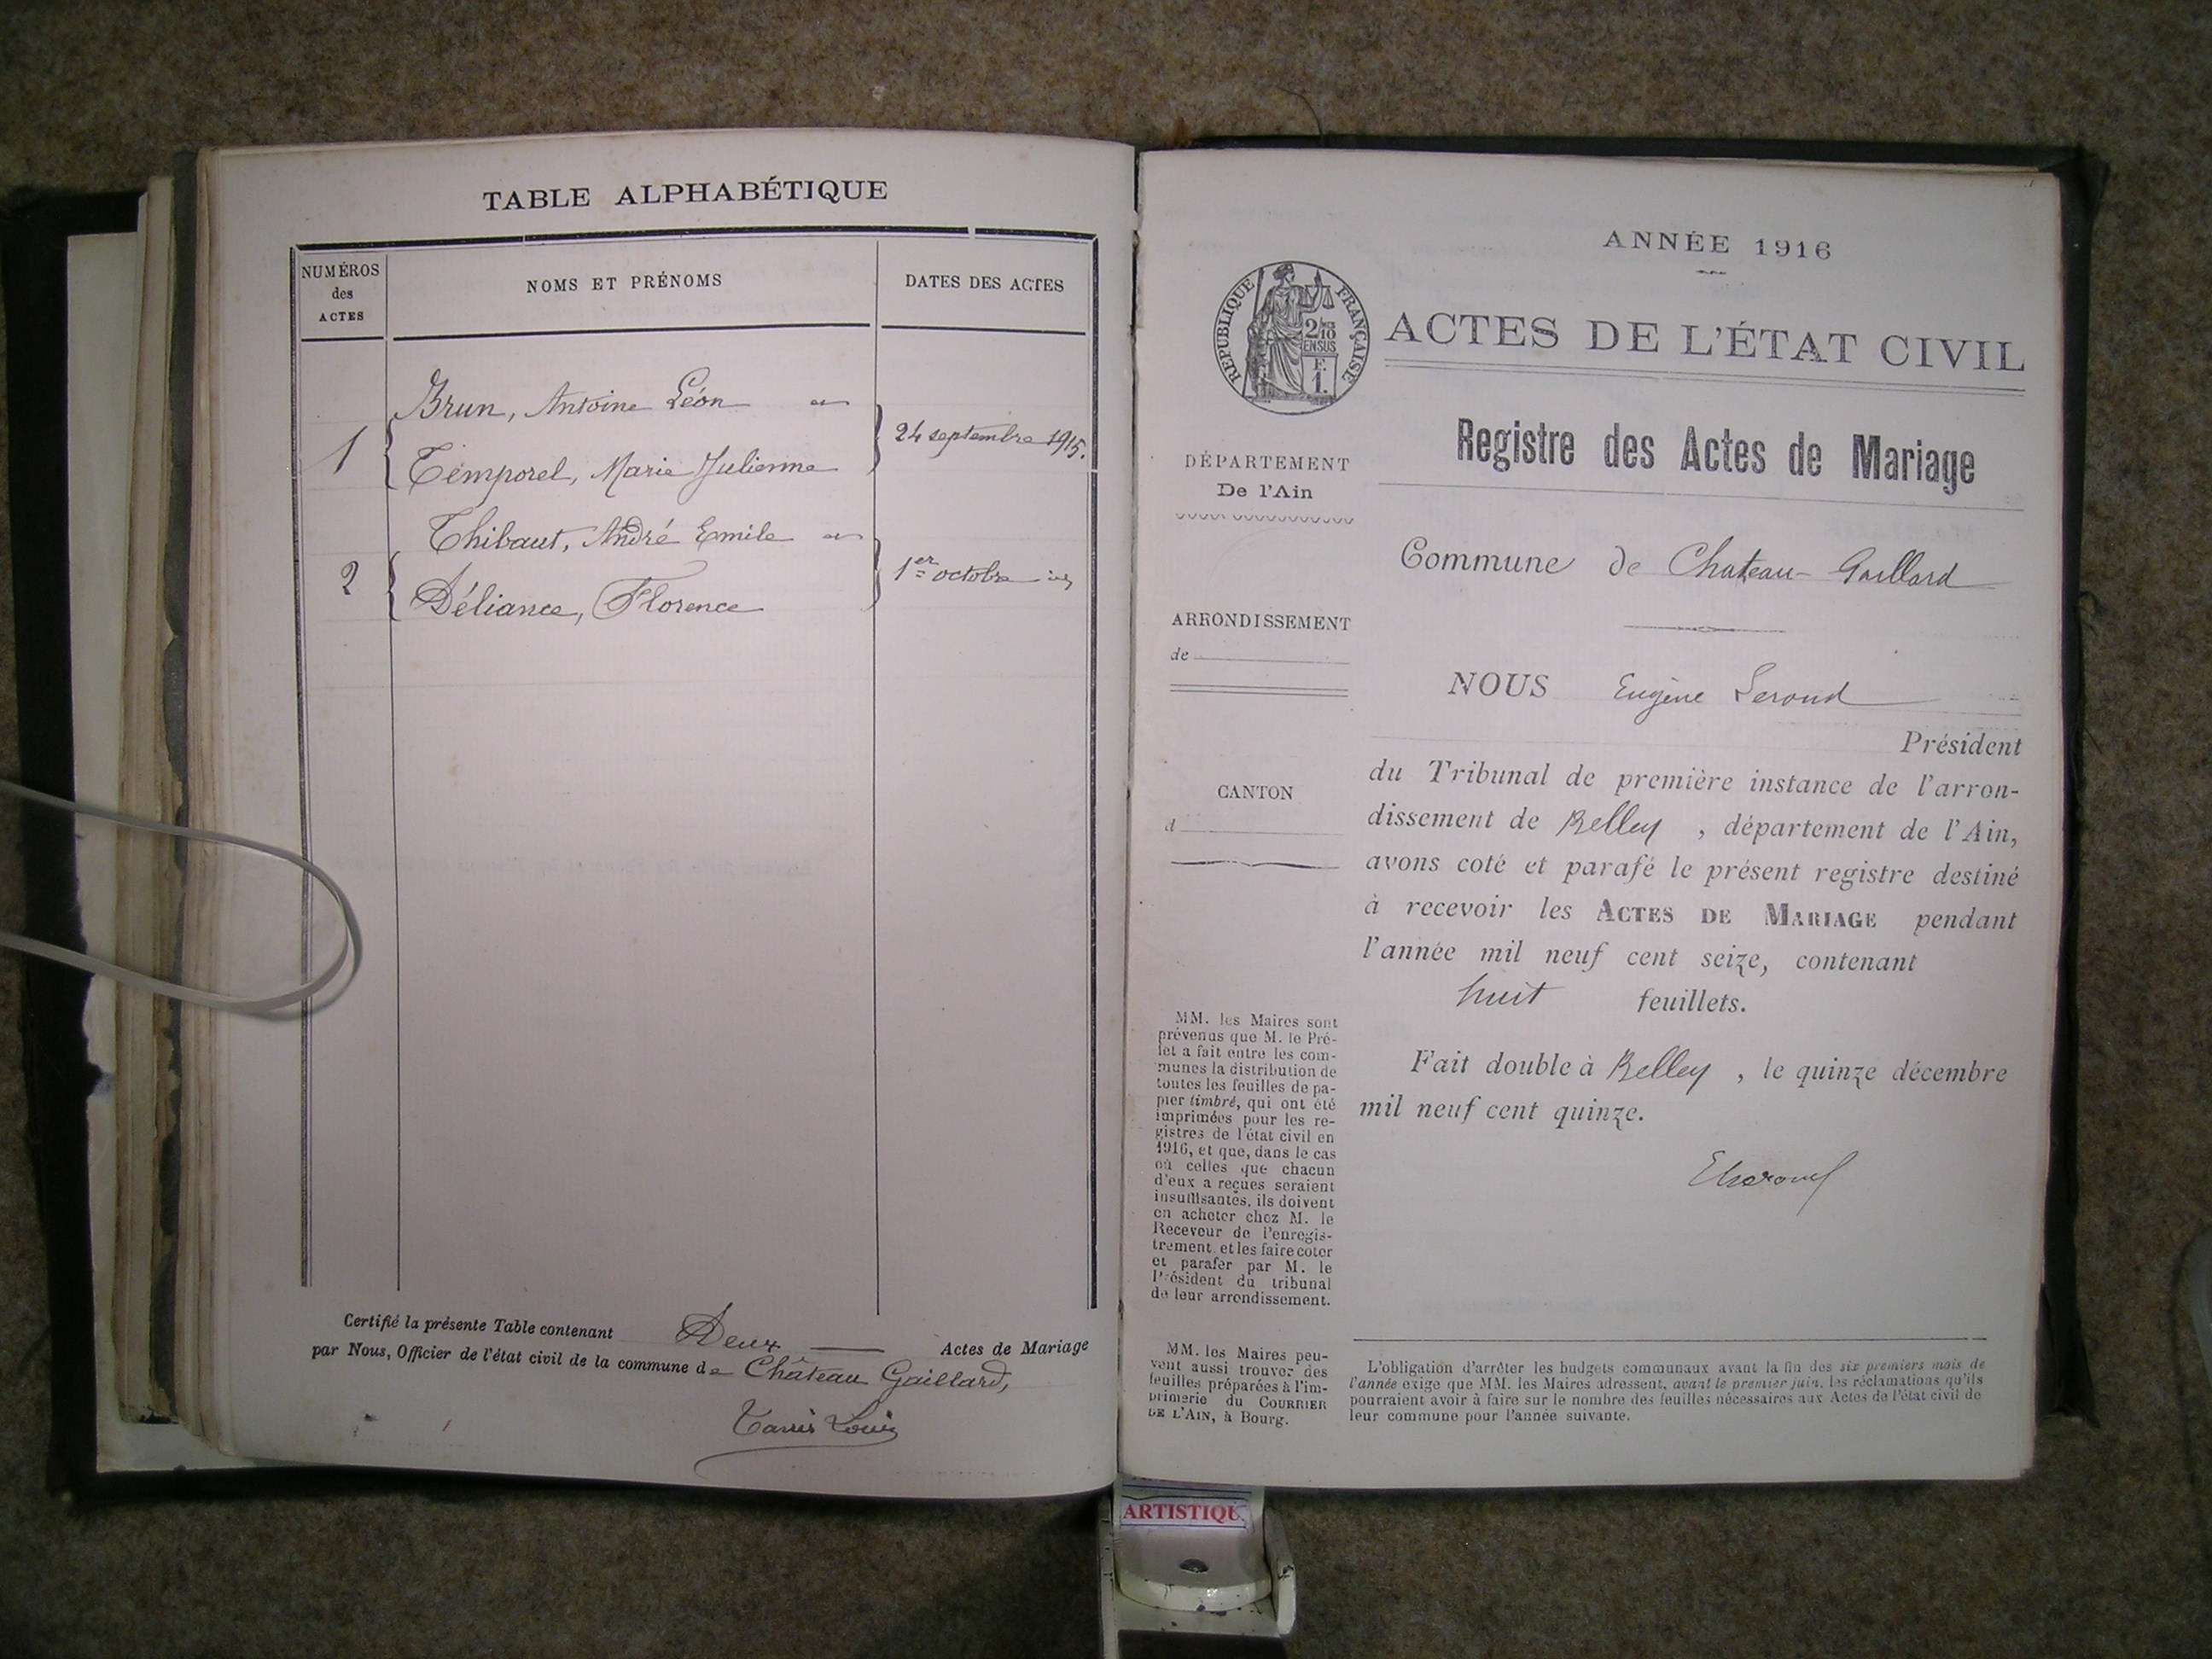 TABLE ALPHABÉTIQUE
NUMÉROS
des
ACTES
NOMS ET PRÉNOMS
DATES DES ACTES
Brun, Antoine Léon
1
24 septembre 1915.
Temporel, Marie Julienne
Thibaut, André Emile
2
1er octobre
Déliance, Florence
Certifié la présente Table contenant Deux Actes de Mariage
par Nous, Officier de l'état civil de la commune de Château Gaillard,
Louis
ANNÉE 1916
RÉPUBLIQUE FRANÇAISE
2/10
EN SUS
F.
1.
ACTES DE L'ÉTAT CIVIL
Registre des Actes de Mariage
DÉPARTEMENT
De l'Ain
Commune de Chateau-Gaillard
ARRONDISSEMENT
de
NOUS Eugène
Président
CANTON
d
du Tribunal de première instance de l'arron-
dissement de Belley, département de l'Ain,
avons coté et parafé le présent registre destiné
à recevoir les ACTES DE MARIAGE pendant
l'année mil neuf cent seize, contenant
huit feuillets.
Fait double à Belley, le quinze décembre
mil neuf cent quinze.
MM. les Maires sont
prévenus que M. le Pré-
fet a fait entre les com-
munes la distribution de
toutes les feuilles de pa-
pier timbré, qui ont été
imprimées pour les re-
gistres de l'état civil en
1916, et que, dans le cas
où celles que chacun
d'eux a reçues seraient
insuffisantes, ils doivent
en acheter chez M. le
Receveur de l'enregis-
trement et les faire coter
et parafer par M. le
Président du tribunal
de leur arrondissement.
MM. les Maires peu-
vent aussi trouver des
feuilles préparées à l'im-
primerie du COURRIER
DE L'AIN, à Bourg.
L'obligation d'arrêter les budgets communaux avant la fin des six premiers mois de
l'année exige que MM. les Maires adressent, avant le premier juin, les réclamations qu'ils
pourraient avoir à faire sur le nombre des feuilles nécessaires aux Actes de l'état civil de
leur commune pour l'année suivante.
ARTISTIQU